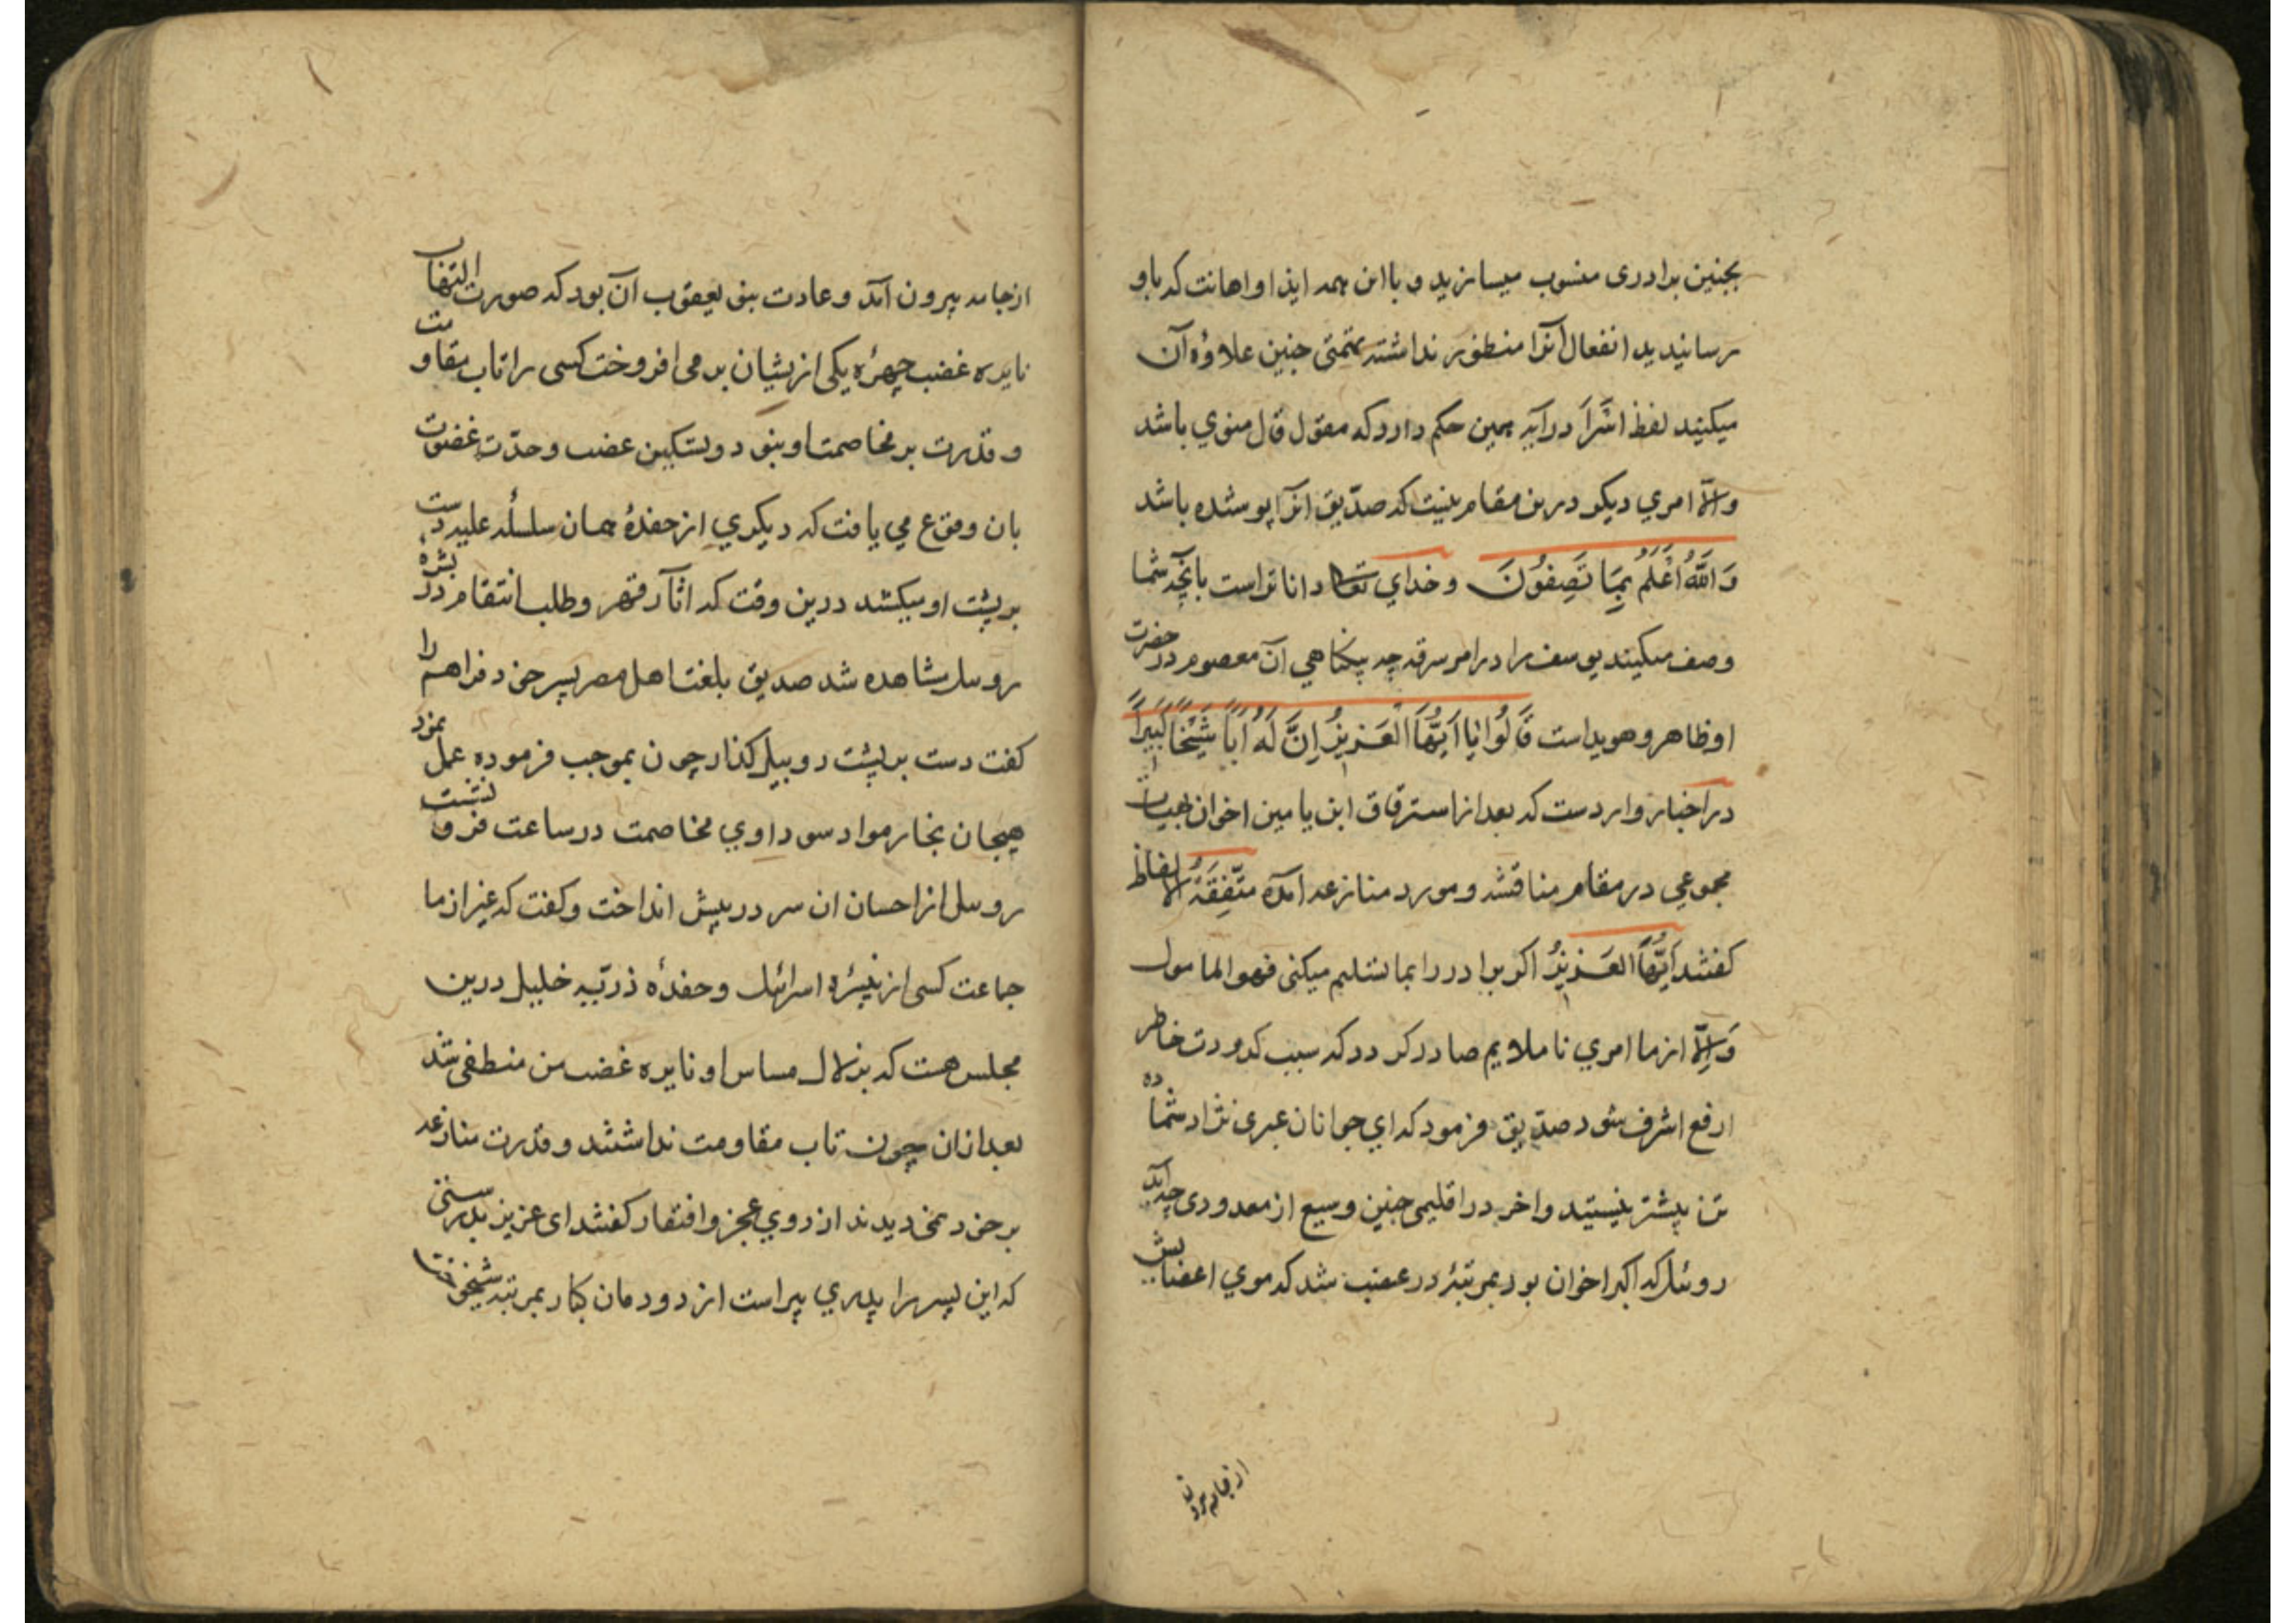 بجنین برادری منسوب میسازید و با این همه ایذا و اهانت که باو
رسانیدید انفعال آنرا منظور نداشته بتمنی جنین علاوهٔ آن
میکنید لفظ اَشَرَّ در آیه همین حکم دارد که مقول قال منوي باشد
والّا امري دیکر درین مقام نیست که صدّیق انرا پوشده باشد
وَاللّٰهُ اَعْلَمُ بِمَا تَصِفُونَ وخداي تعا دانا تر است بانچه شما
وصف میکنید یوسف را در امر سرقه چه بیکناهي آن معصوم در حضرت
او ظاهر و هویداست قَالُوا یَا اَیُّهَا الْعَزِیزُ اِنَّ لَهُ اَبًا شَیْخًا کَبِیرًا
در اخبار وارد ست که بعد از استرقاق ابن یامین اخوان بهیات
مجموعي در مقام مناقشه و مورد منازعه آمده متّفِقَةُ الالفاظ
کفتند اَیُّهَا العَزیزُ اکر برادر را بما تسلیم میکنی فهو المامول
وَاِلّا از ما امري ناملایم صادر کردد که سبب کدورت خاطر
ارفع اشرف شود صدّیق فرمود که اي جوانان عبری نژاد شما ده
تن بیشتر نیستید و اخر در اقلیمی جنین وسیع از معدودی چه آید
روئیل که اکبر اخوان بود بمرتبهٔ در غضب شد که موي اعضایش
از جامه بیرون
از جامه بیرون آمد و عادت بنی یعقوب آن بود که صورت التهاب
نایره غضب چهرهٔ یکی ازیشان بر می افروخت کسی را تاب مقاومت
و قدرت بر مخاصمت او نبود و تسکین غضب و حدّت غضوت
بان وقوع مي یافت که دیکري از حفدهٔ همان سلسله علیه دست
بر پشت او میکشد درین وقت که اثار قهر و طلب انتقام در بشره
روبیل مشاهده شد صدیق بلغت اهل مصر پسر خود فراهم را
کفت دست بر پشت روبیل کذار چون بموجب فرموده عمل نمود
هیجان بخار مواد سوداوي مخاصمت در ساعت فرو نشست
روبیل از احسان ان سر در پیش انداخت و کفت که غیر از ما
جماعت کسی از نبیرهٔ اسرائیل و حفدهٔ ذریّه خلیل درین
مجلس هست که بزلال مساس او نایره غضب من منطفی شد
بعد ازان چون تاب مقاومت نداشتند و قدرت منازعه
بر خود نمی دیدند از روي عجز و افتقار کفتند ای عزیز بدرستی
که این پسر را پدري پیر است از دودمان کبار بمرتبه شیخوخت